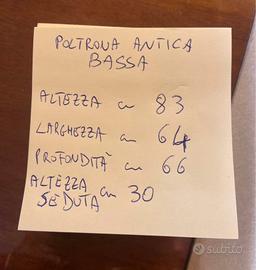 POLTRONA ANTICA
BASSA
ALTEZZA cm 83
LARGHEZZA cm 64
PROFONDITÀ cm 66
ALTEZZA cm 30
SEDUTA
subito